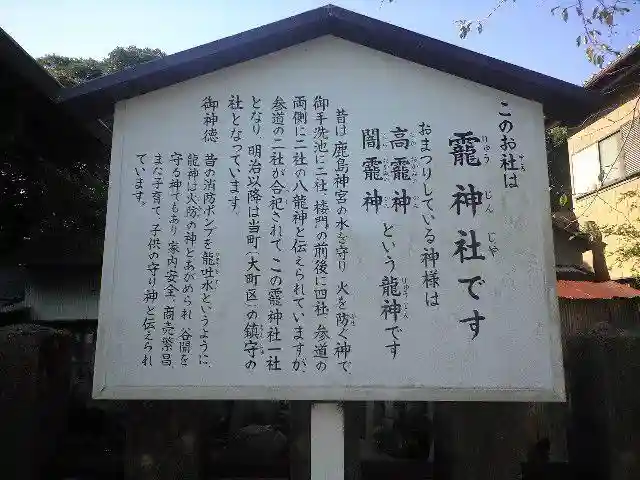 このお社は
靇神社です
りゅう じん じゃ
おまつりしている神様は
高靇神
闇靇神
という龍神です
りゅうじん
昔は 鹿島神宮の水を守り 火を防ぐ神で、
御手洗池に二社、楼門の前後に四社、参道の
両側に二社の八龍神と伝えられていますが、
参道の二社が合祀されて、この靇神社一社
となり、明治以降は当町(大町区)の鎮守の
社となっています。
御神徳
昔の消防ポンプを龍吐水というように、
龍神は火防の神とあがめられ、谷間を
守る神でもあり 家内安全、商売繁昌、
また子育て、子供の守り神と伝えられ
ています。